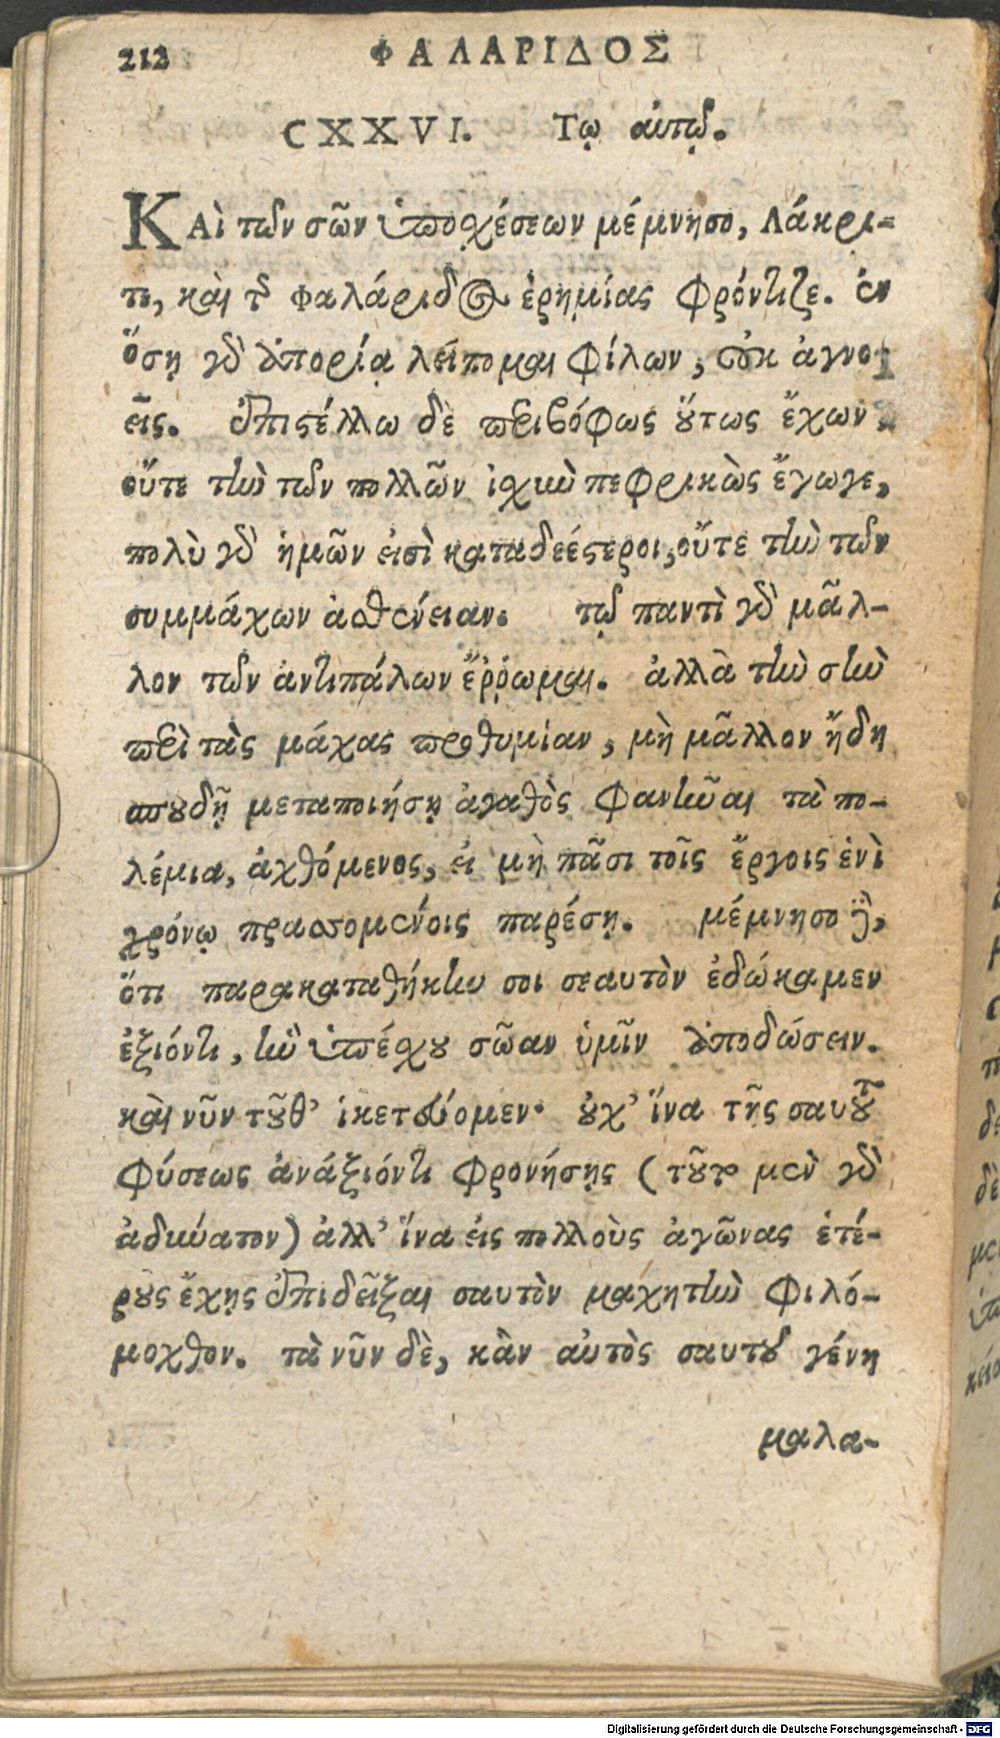 212 ΦΑΛΑΡΙΔΟΣ
CXXVI. Τῳ αὐτῳ.
ΚΑὶ τῶν σῶν ὑποσχέσεων μέμνησο, Λάκρι-
τε, καὶ τῆς Φαλάριδος ἐρημίας φρόντιζε. ἐν
ὅσῃ γὰρ ἀπορίᾳ λείπομαι φίλων, οὐκ ἀγνο
εῖς. ἐπιστέλλω δὲ περιβόφως οὕτως ἔχων
οὔτε τὴν τῶν πολλῶν ἰσχὺν πεφρικὼς ἔγωγε,
πολὺ γὰρ ἡμῶν εἰσὶ καταδεέστεροι, οὔτε τὴν τῶν
συμμάχων ἀσθένειαν. τῳ παντὶ γὰρ μᾶλ-
λον τῶν ἀντιπάλων ἔῤῥωμαι. ἀλλὰ τὴν σὴν
περὶ τὰς μάχας προθυμίαν, μὴ μᾶλλον ἤδη
σπουδῇ μεταποιήσῃ ἀγαθὸς φανῆναι τὰ πο-
λέμια, ἀχθόμενος, εἰ μὴ πᾶσι τοῖς ἔργοις ἑνὶ
χρόνῳ πρασσομένοις παρέσῃ. μέμνησο δὲ,
ὅτι παρακαταθήκην σοι σεαυτὸν ἐδώκαμεν
ἐξιόντι, ἣν ὑπέσχου σῶαν ὑμῖν ἀποδώσειν.
καὶ νῦν τοῦθ' ἱκετεύομεν· οὐχ' ἵνα τῆς σαυτοῦ
φύσεως ἀνάξιόντι φρονήσῃς (τοῦτο μὲν γὰρ
ἀδύνατον) ἀλλ' ἵνα εἰς πολλοὺς ἀγῶνας ἑτέ-
ρους ἔχῃς ἐπιδεῖξαι σαυτὸν μαχητὴν φιλό-
μοχθον. τὰ νῦν δὲ, κἂν αὐτὸς σαυτοῦ γένῃ
μαλα-
Digitalisierung gefördert durch die Deutsche Forschungsgemeinschaft - DFG